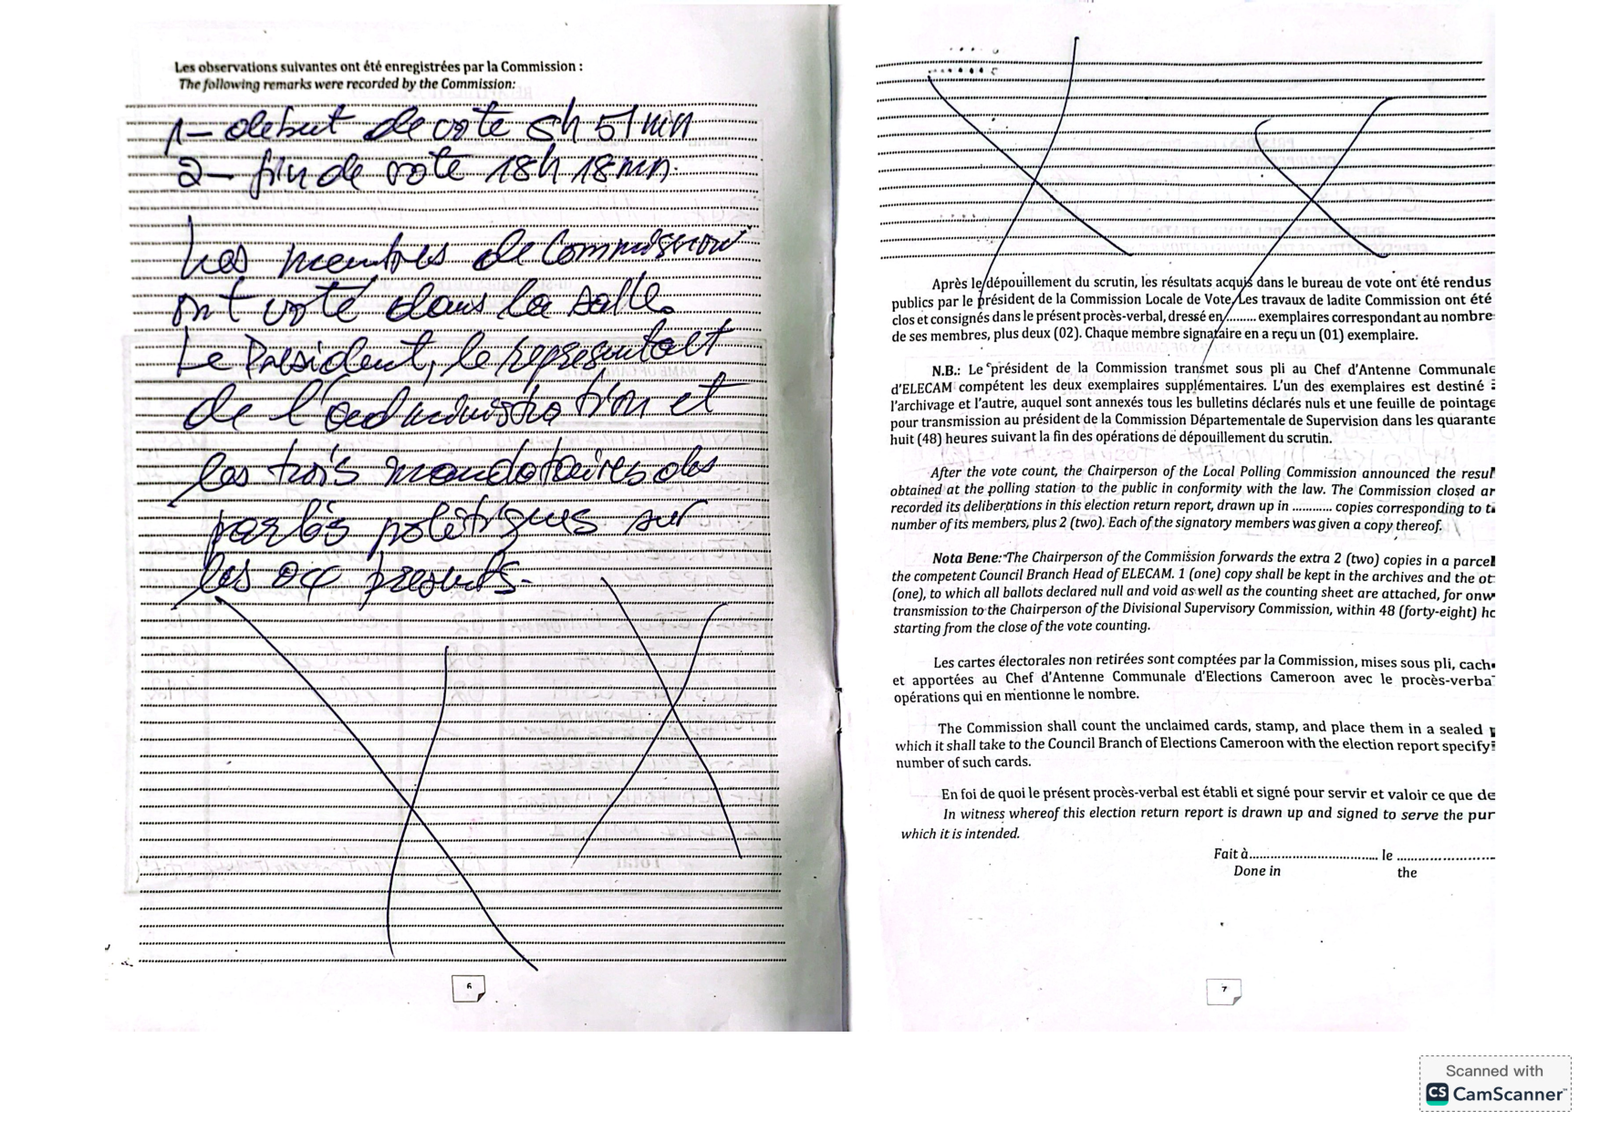 Les observations suivantes ont été enregistrées par la Commission :
The following remarks were recorded by the Commission:
1- debut de vote 8h 51mn
2- fin de vote 18h 18mn.
Les membres de Commission
ont voté dans la salle.
Le President, le representant
de l'administration et
les trois mandataires des
partis politiques sur
les 04 presents.
6
Après le dépouillement du scrutin, les résultats acquis dans le bureau de vote ont été rendus
publics par le président de la Commission Locale de Vote. Les travaux de ladite Commission ont été
clos et consignés dans le présent procès-verbal, dressé en.......... exemplaires correspondant au nombre
de ses membres, plus deux (02). Chaque membre signataire en a reçu un (01) exemplaire.
N.B.: Le président de la Commission transmet sous pli au Chef d'Antenne Communale
d'ELECAM compétent les deux exemplaires supplémentaires. L'un des exemplaires est destiné
l'archivage et l'autre, auquel sont annexés tous les bulletins déclarés nuls et une feuille de pointage
pour transmission au président de la Commission Départementale de Supervision dans les quarante
huit (48) heures suivant la fin des opérations de dépouillement du scrutin.
After the vote count, the Chairperson of the Local Polling Commission announced the resul
obtained at the polling station to the public in conformity with the law. The Commission closed ar
recorded its deliberations in this election return report, drawn up in ............ copies corresponding to t
number of its members, plus 2 (two). Each of the signatory members was given a copy thereof.
Nota Bene: The Chairperson of the Commission forwards the extra 2 (two) copies in a parcel
the competent Council Branch Head of ELECAM. 1 (one) copy shall be kept in the archives and the ot
(one), to which all ballots declared null and void as well as the counting sheet are attached, for onw
transmission to the Chairperson of the Divisional Supervisory Commission, within 48 (forty-eight) hc
starting from the close of the vote counting.
Les cartes électorales non retirées sont comptées par la Commission, mises sous pli, cach
et apportées au Chef d'Antenne Communale d'Elections Cameroon avec le procès-verba
opérations qui en mentionne le nombre.
The Commission shall count the unclaimed cards, stamp, and place them in a sealed
which it shall take to the Council Branch of Elections Cameroon with the election report specify
number of such cards.
En foi de quoi le présent procès-verbal est établi et signé pour servir et valoir ce que de
In witness whereof this election return report is drawn up and signed to serve the pur
which it is intended.
Fait à.................................... le ........................
Done in the
7
Scanned with
CS CamScanner